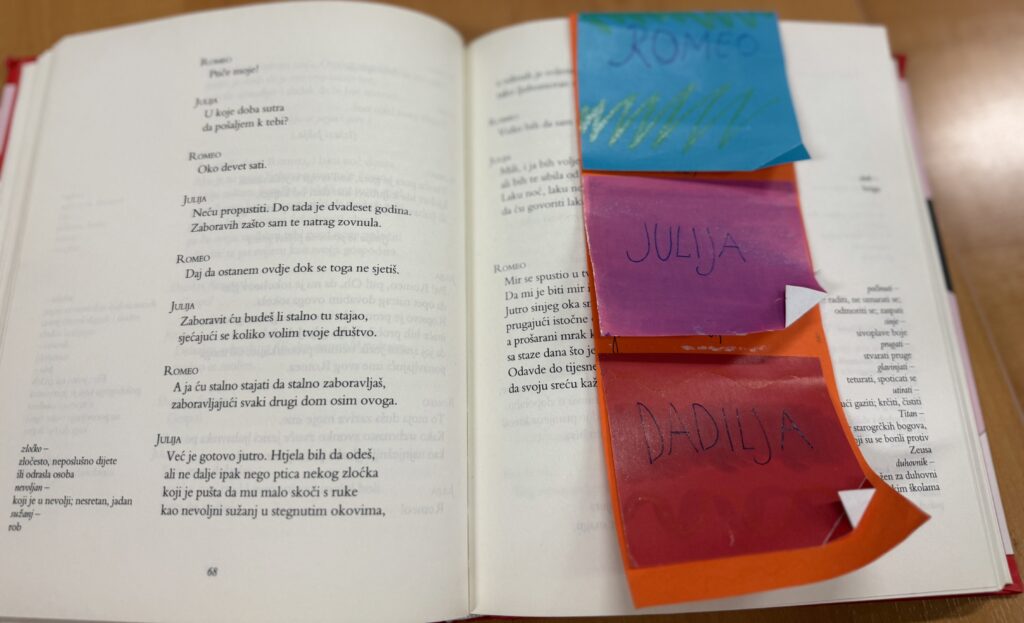 ROMEO
Ptiče moje!
JULIJA
U koje doba sutra
da pošaljem k tebi?
ROMEO
Oko devet sati.
JULIJA
Neću propustiti. Do tada je dvadeset godina.
Zaboravih zašto sam te natrag zovnula.
ROMEO
Daj da ostanem ovdje dok se toga ne sjetiš.
JULIJA
Zaboravit ću budeš li stalno tu stajao,
sjećajući se koliko volim tvoje društvo.
ROMEO
A ja ću stalno stajati da stalno zaboravljaš,
zaboravljajući svaki drugi dom osim ovoga.
JULIJA
Već je gotovo jutro. Htjela bih da odeš,
ali ne dalje ipak nego ptica nekog zločka
koji je pušta da mu malo skoči s ruke
kao nevoljni sužanj u stegnutim okovima,
zločko –
zločesto, neposlušno dijete
ili odrasla osoba
nevoljan –
koji je u nevolji; nesretan, jadan
sužanj –
rob
68
ROMEO
JULIJA
DADILJA
Mili, i ja bih volje
ali bih te ubila od
Laku noć, laku
da ću govoriti laku
ROMEO
Mir se spustio u
Da mi je biti mir
Jutro sinjeg oka
prugajući istočne
a prošarani mrak
sa staze dana što je
Odavde do tijesne
da svoju sreću
počinuti –
raditi, ne umarati se;
odmoriti se; zaspati
sinje –
sivoplave boje
prugati –
stvarati pruge
glavinjati –
teturati, spoticati se
utirati –
gaziti; krčiti, čistiti
Titan –
starogrčkih bogova,
koji su se borili protiv
Zeusa
duhovnik –
za duhovni
školama